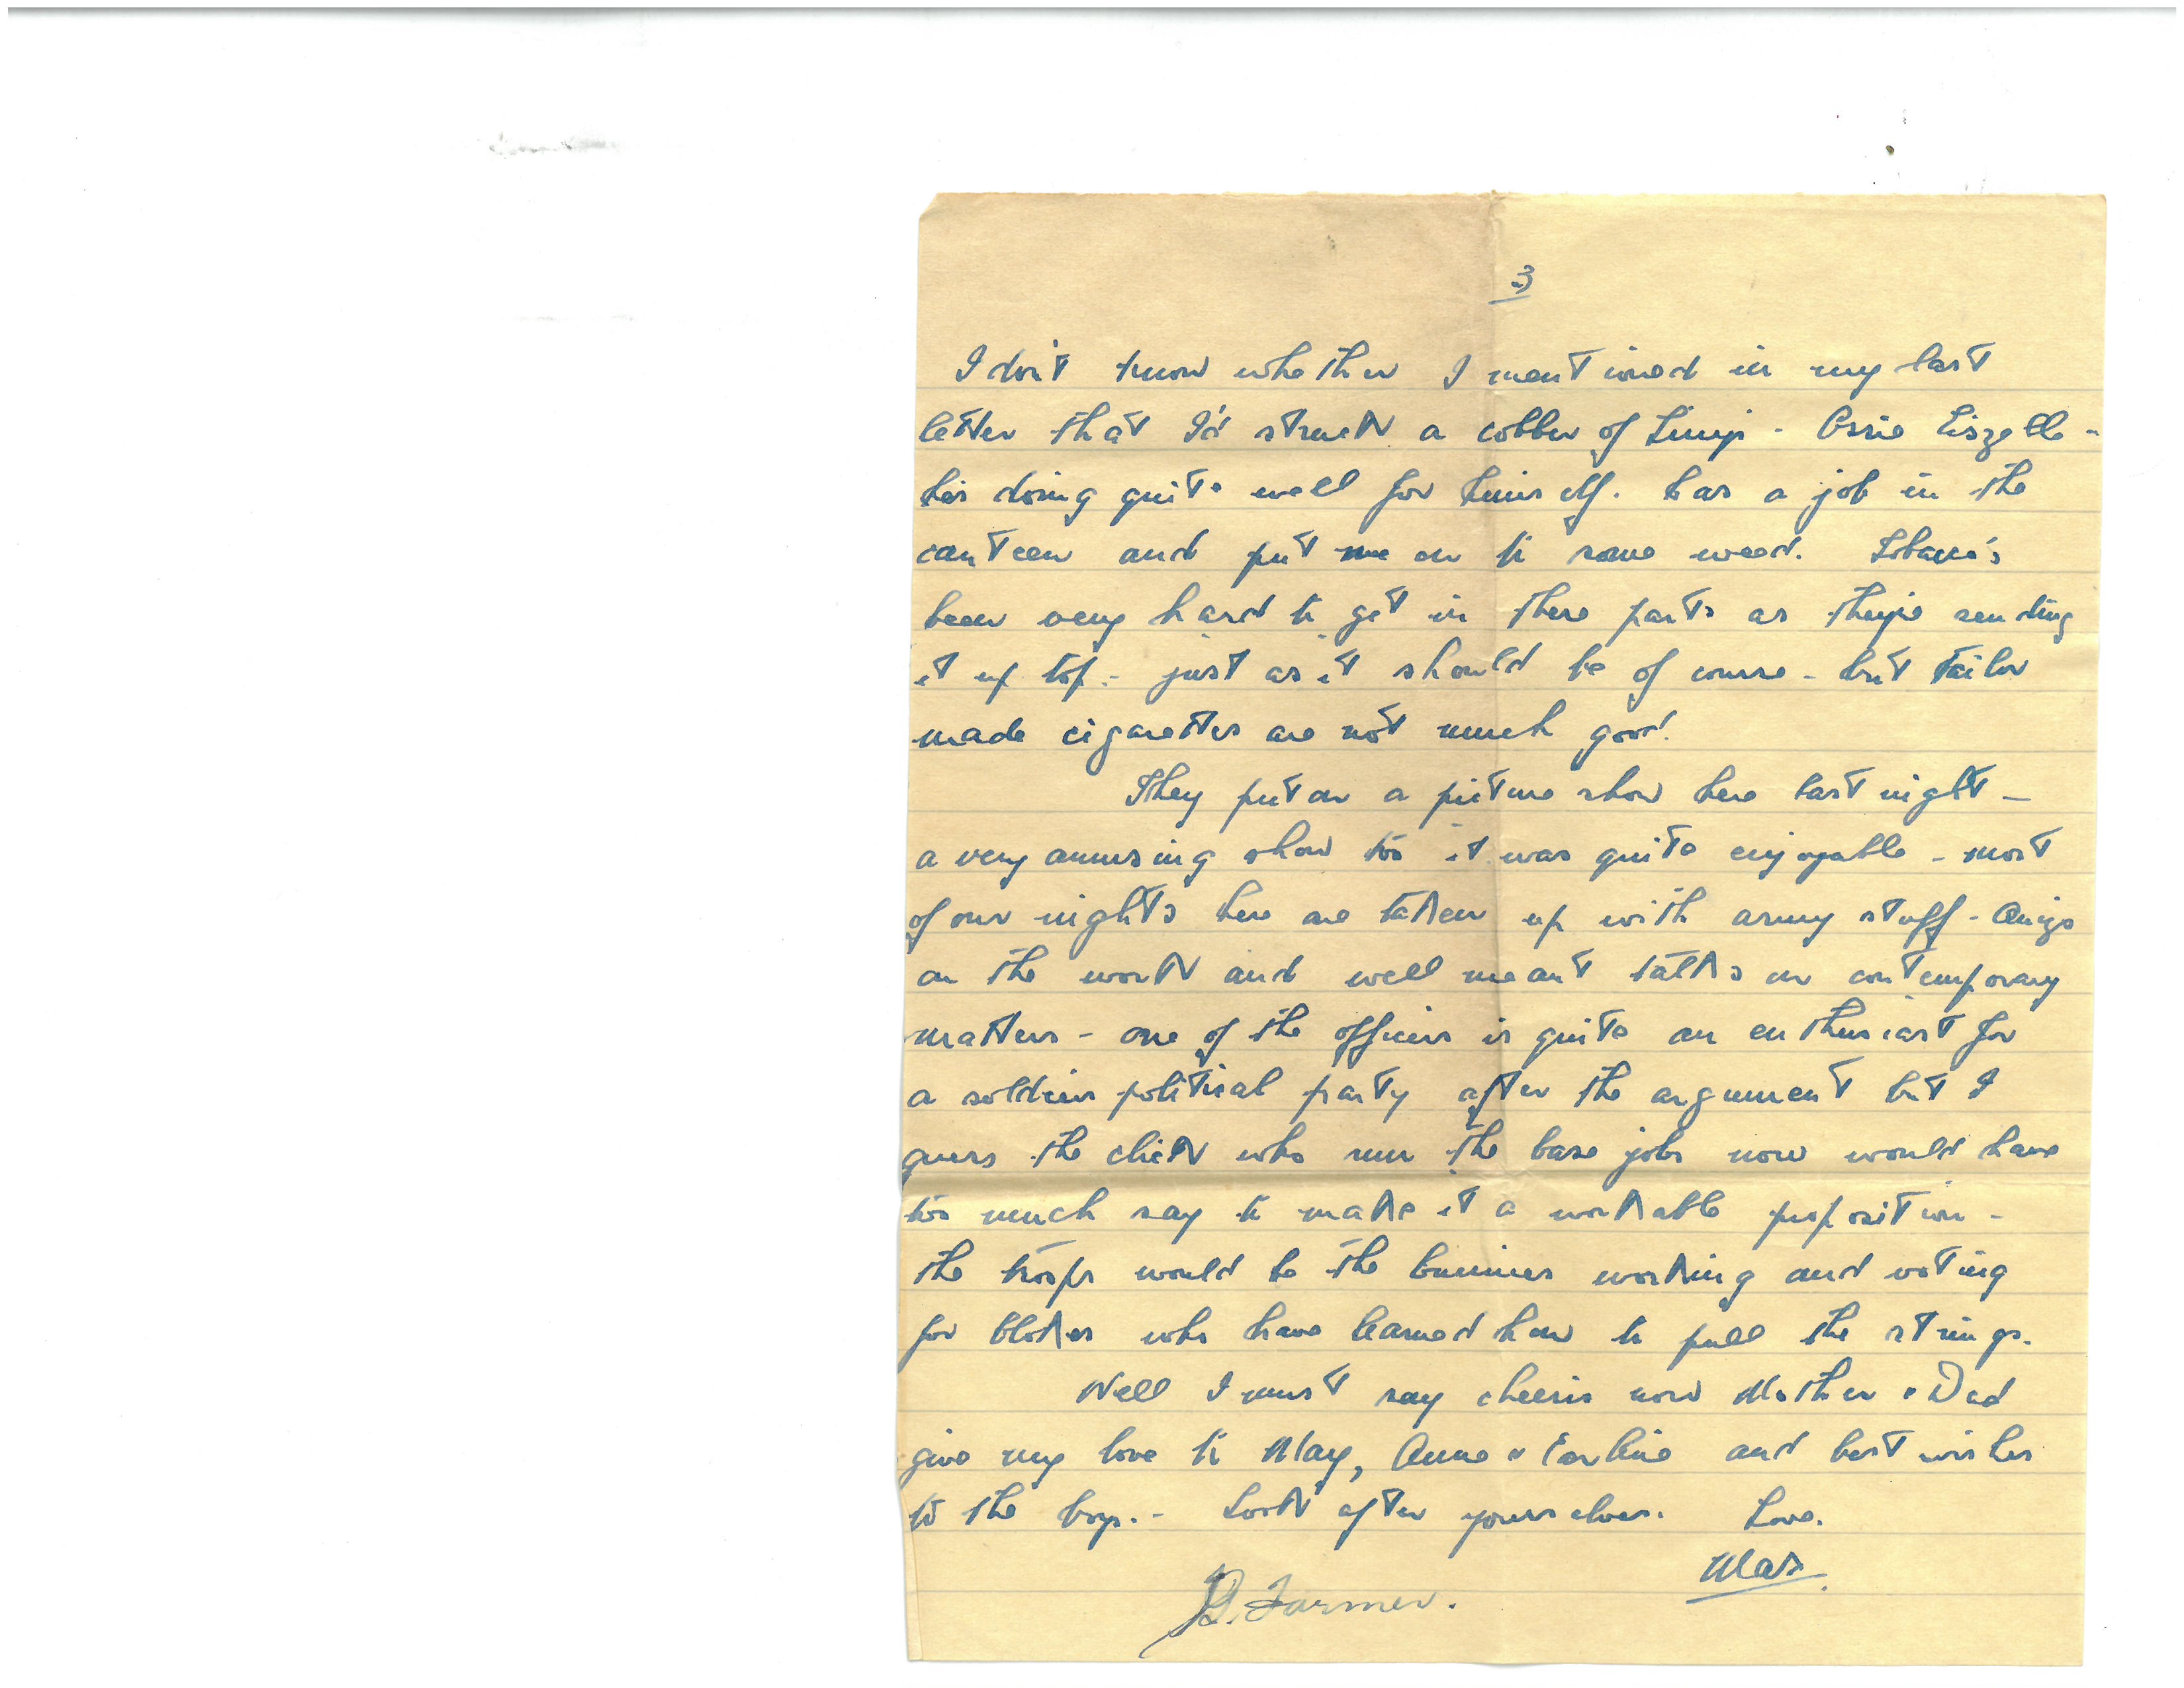 3
I don't know whether I mentioned in my last
letter that I'd struck a cobber of - Ossie
he's doing quite well for himself. has a job in the
canteen and put me on to some weed. Tobacco's
been very hard to get in these parts as they're sending
it up top - just as it should be of course - but tailor
made cigarettes are not much good.
They put on a picture show here last night -
a very amusing show too it was quite enjoyable - most
of our nights here are taken up with army stuff -
on the work and well meant talks on contemporary
matters - one of the officers is quite an enthusiast for
a soldiers political party after the argument but I
guess the click who run the base jobs now would have
too much say to make it a workable proposition -
the troops would be the bunnies working and voting
for blokes who have learned how to pull the strings.
Well I must say cheerio now Mother & Dad
give my love to May, Anne & and best wishes
to the boys. - Look after yourselves. Love.
Max.
Farmer.